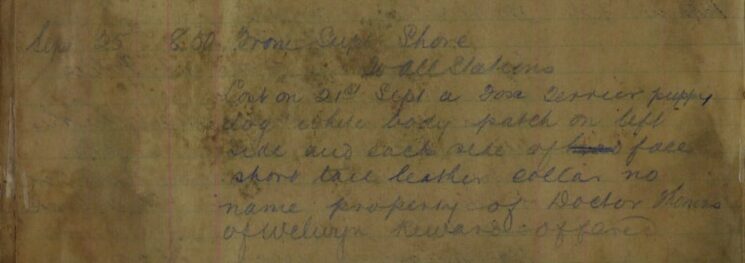 Sept 25 8.50 From Supt Shore
To All Stations
Lost on 21st Sept a Fox Terrier puppy
dog white body patch on left
side and each side of face
short tail leather collar no
name property of Doctor
of Welwyn Reward offered